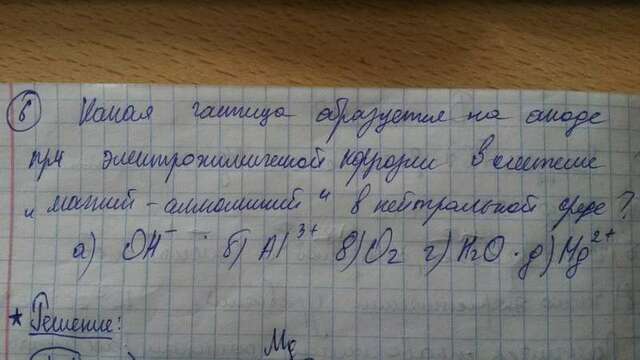 6 Какая частица образуется на аноде
при электрохимической коррозии в системе
„магний - алюминий" в нейтральной среде?
а) OH⁻ б) Al³⁺ в) O₂ г) H₂O д) Mg²⁺
* Решение:
Mg